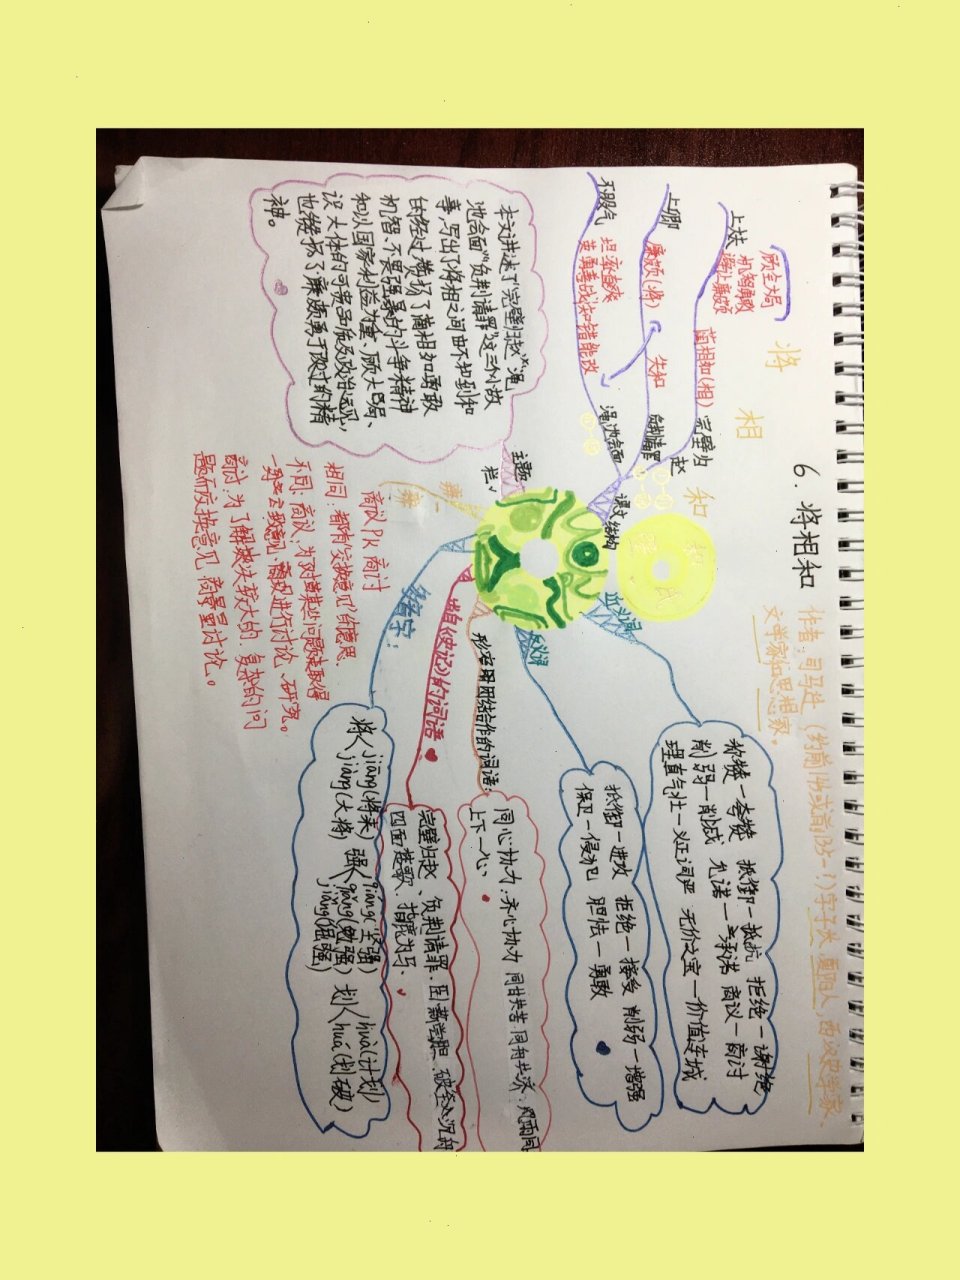 6. 将相和
作者：司马迁（约前145或前135—？）字子长，夏阳人，西汉史学家、
文学家和思想家。
将
相
和
课文结构
完璧归
赵
渑池会面
负荆请罪
蔺相如(相)
失和
廉颇(将)
上卿
不服气
顾全局
机智勇敢
坦率直爽
英勇善战知错能改
近义词
称赞—夸赞 抵御—抵抗 拒绝—谢绝
削弱—削减 允诺—承诺 商议—商讨
理直气壮—义正词严 无价之宝—价值连城
反义词
抵御—进攻 拒绝—接受 削弱—增强
保卫—侵犯 胆怯—勇敢
形容团结合作的词语：
同心协力、齐心协力、同甘共苦、同舟共济、风雨同
上下一心、
出自《史记》的词语
完璧归赵、负荆请罪、卧薪尝胆、破釜沉舟
四面楚歌、指鹿为马、
多音字：
将 jiāng(将来) jiàng(大将)
强 qiáng(坚强) qiǎng(勉强) jiàng(倔强)
划 huà(计划) huá(划破)
主题
栏
本文讲述了“完璧归赵”“渑
池会面”“负荆请罪”这三个小故
事，写出了将相之间由不和到和
的经过，赞扬了蔺相如勇敢
机智、不畏强暴的斗争精神
和以国家利益为重，顾大局、
识大体的可贵品质及政治远见，
也赞扬了廉颇勇于改过的精
神。
辨一
辨
商议PK商讨
相同：都有“交换意见”的意思。
不同：商议：为了对某些问题取得
一致意见而进行讨论、研究。
商讨：为了解决较大的、复杂的问
题而交换意见，商量讨论。